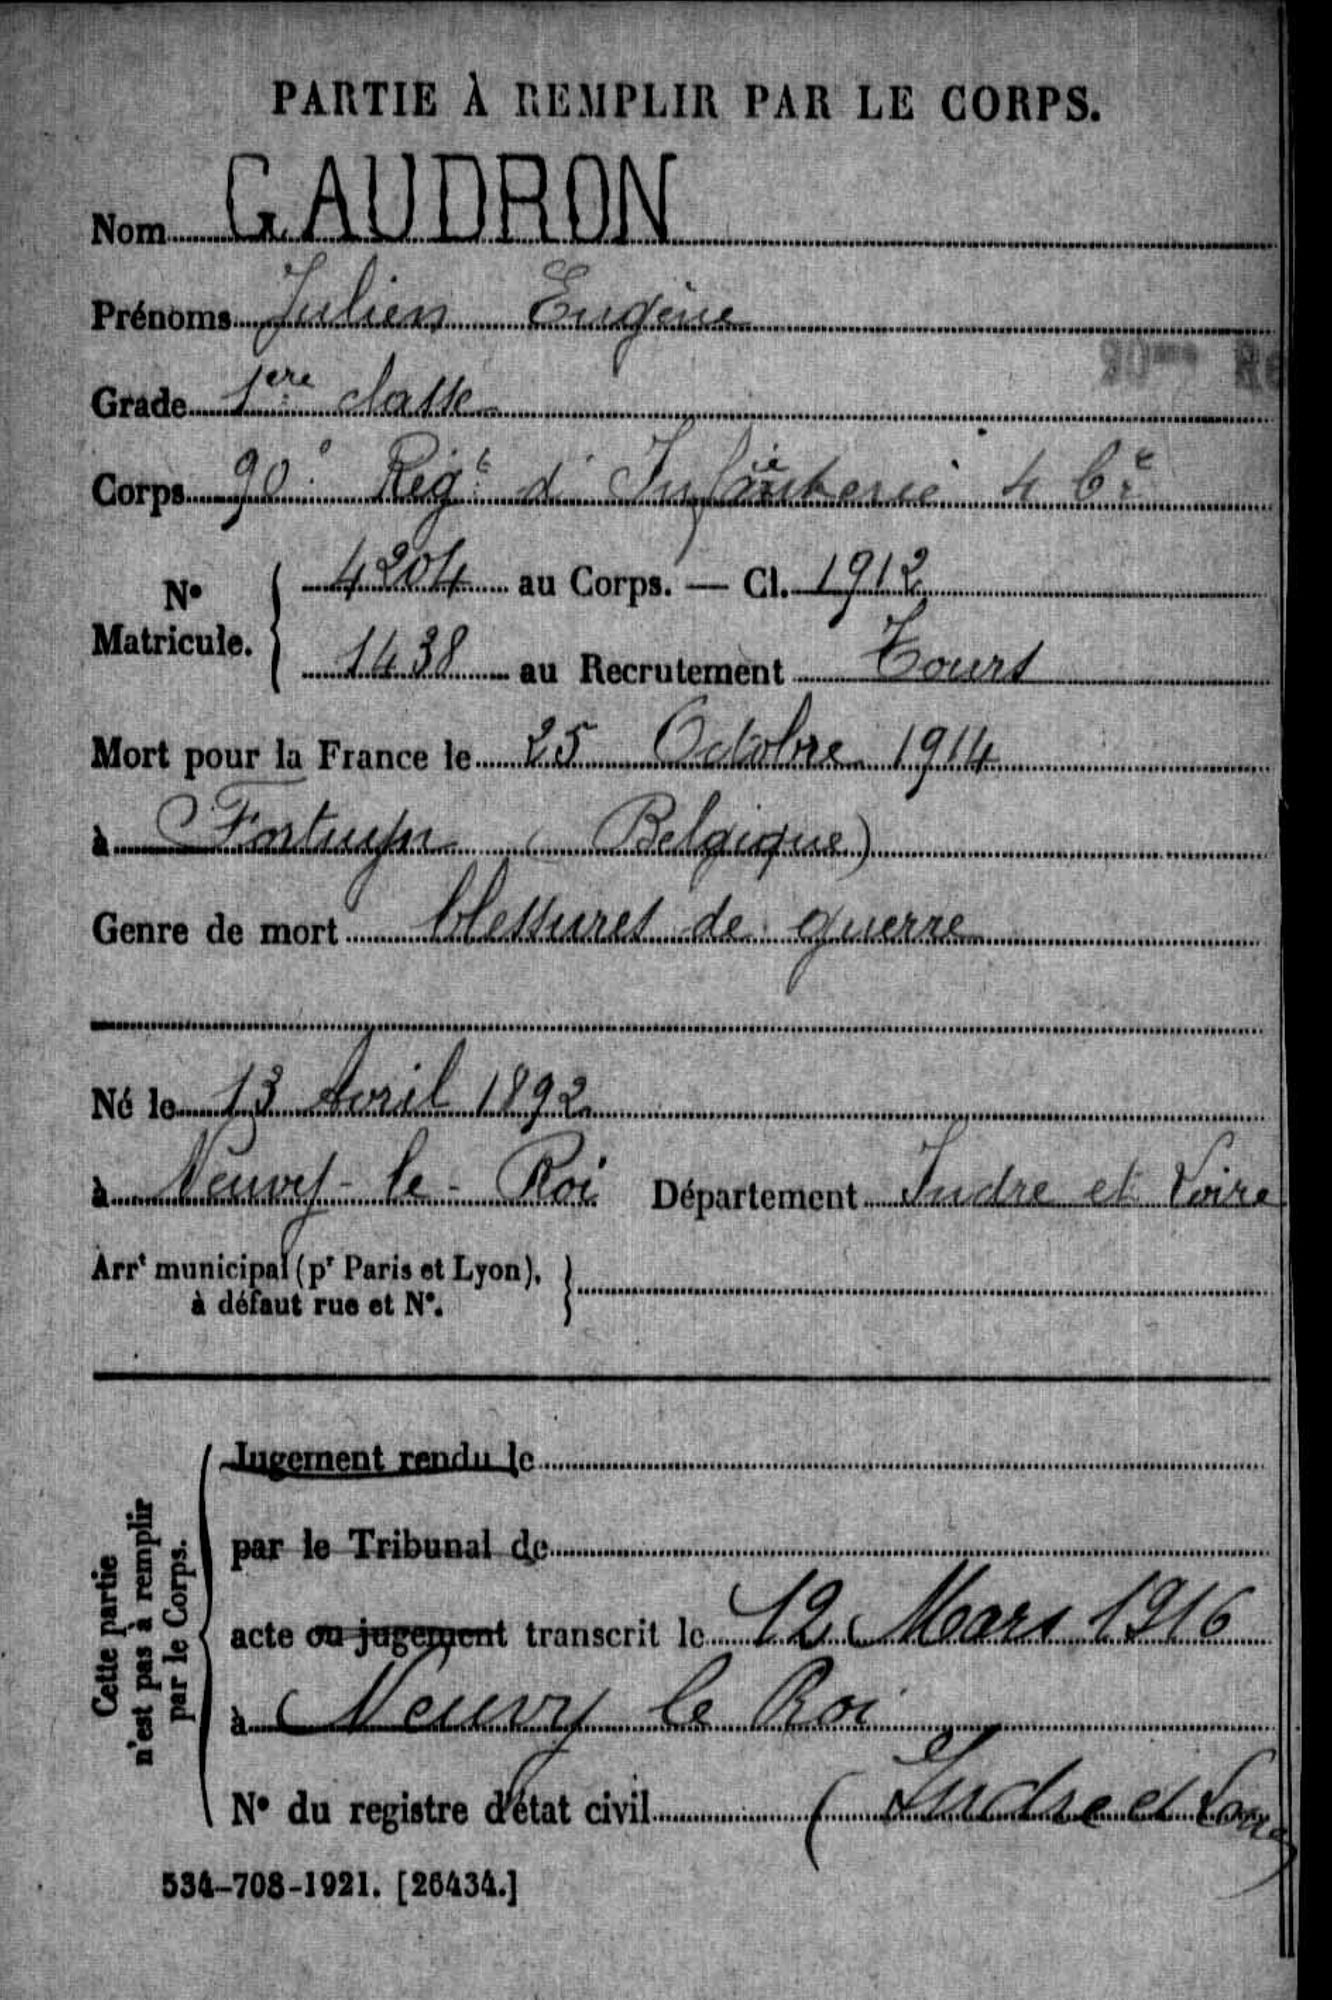 PARTIE À REMPLIR PAR LE CORPS.
Nom GAUDRON
Prénoms Julien Eugène
Grade 1ère classe
90me Ré
Corps 90e Régt d'Infanterie 4 Cie
No Matricule. 4204 au Corps. — Cl. 1912
1438 au Recrutement Tours
Mort pour la France le 25 Octobre 1914
à Fortuyn (Belgique)
Genre de mort blessures de guerre
Né le 13 Avril 1892
à Neuvy-le-Roi Département Indre et Loire
Arrt municipal (pr Paris et Lyon),
à défaut rue et No.
Cette partie
n'est pas à remplir
par le Corps.
Jugement rendu le
par le Tribunal de
acte ou jugement transcrit le 12 Mars 1916
à Neuvy le Roi
No du registre d'état civil (Indre et Loire)
534-708-1921. [26434.]